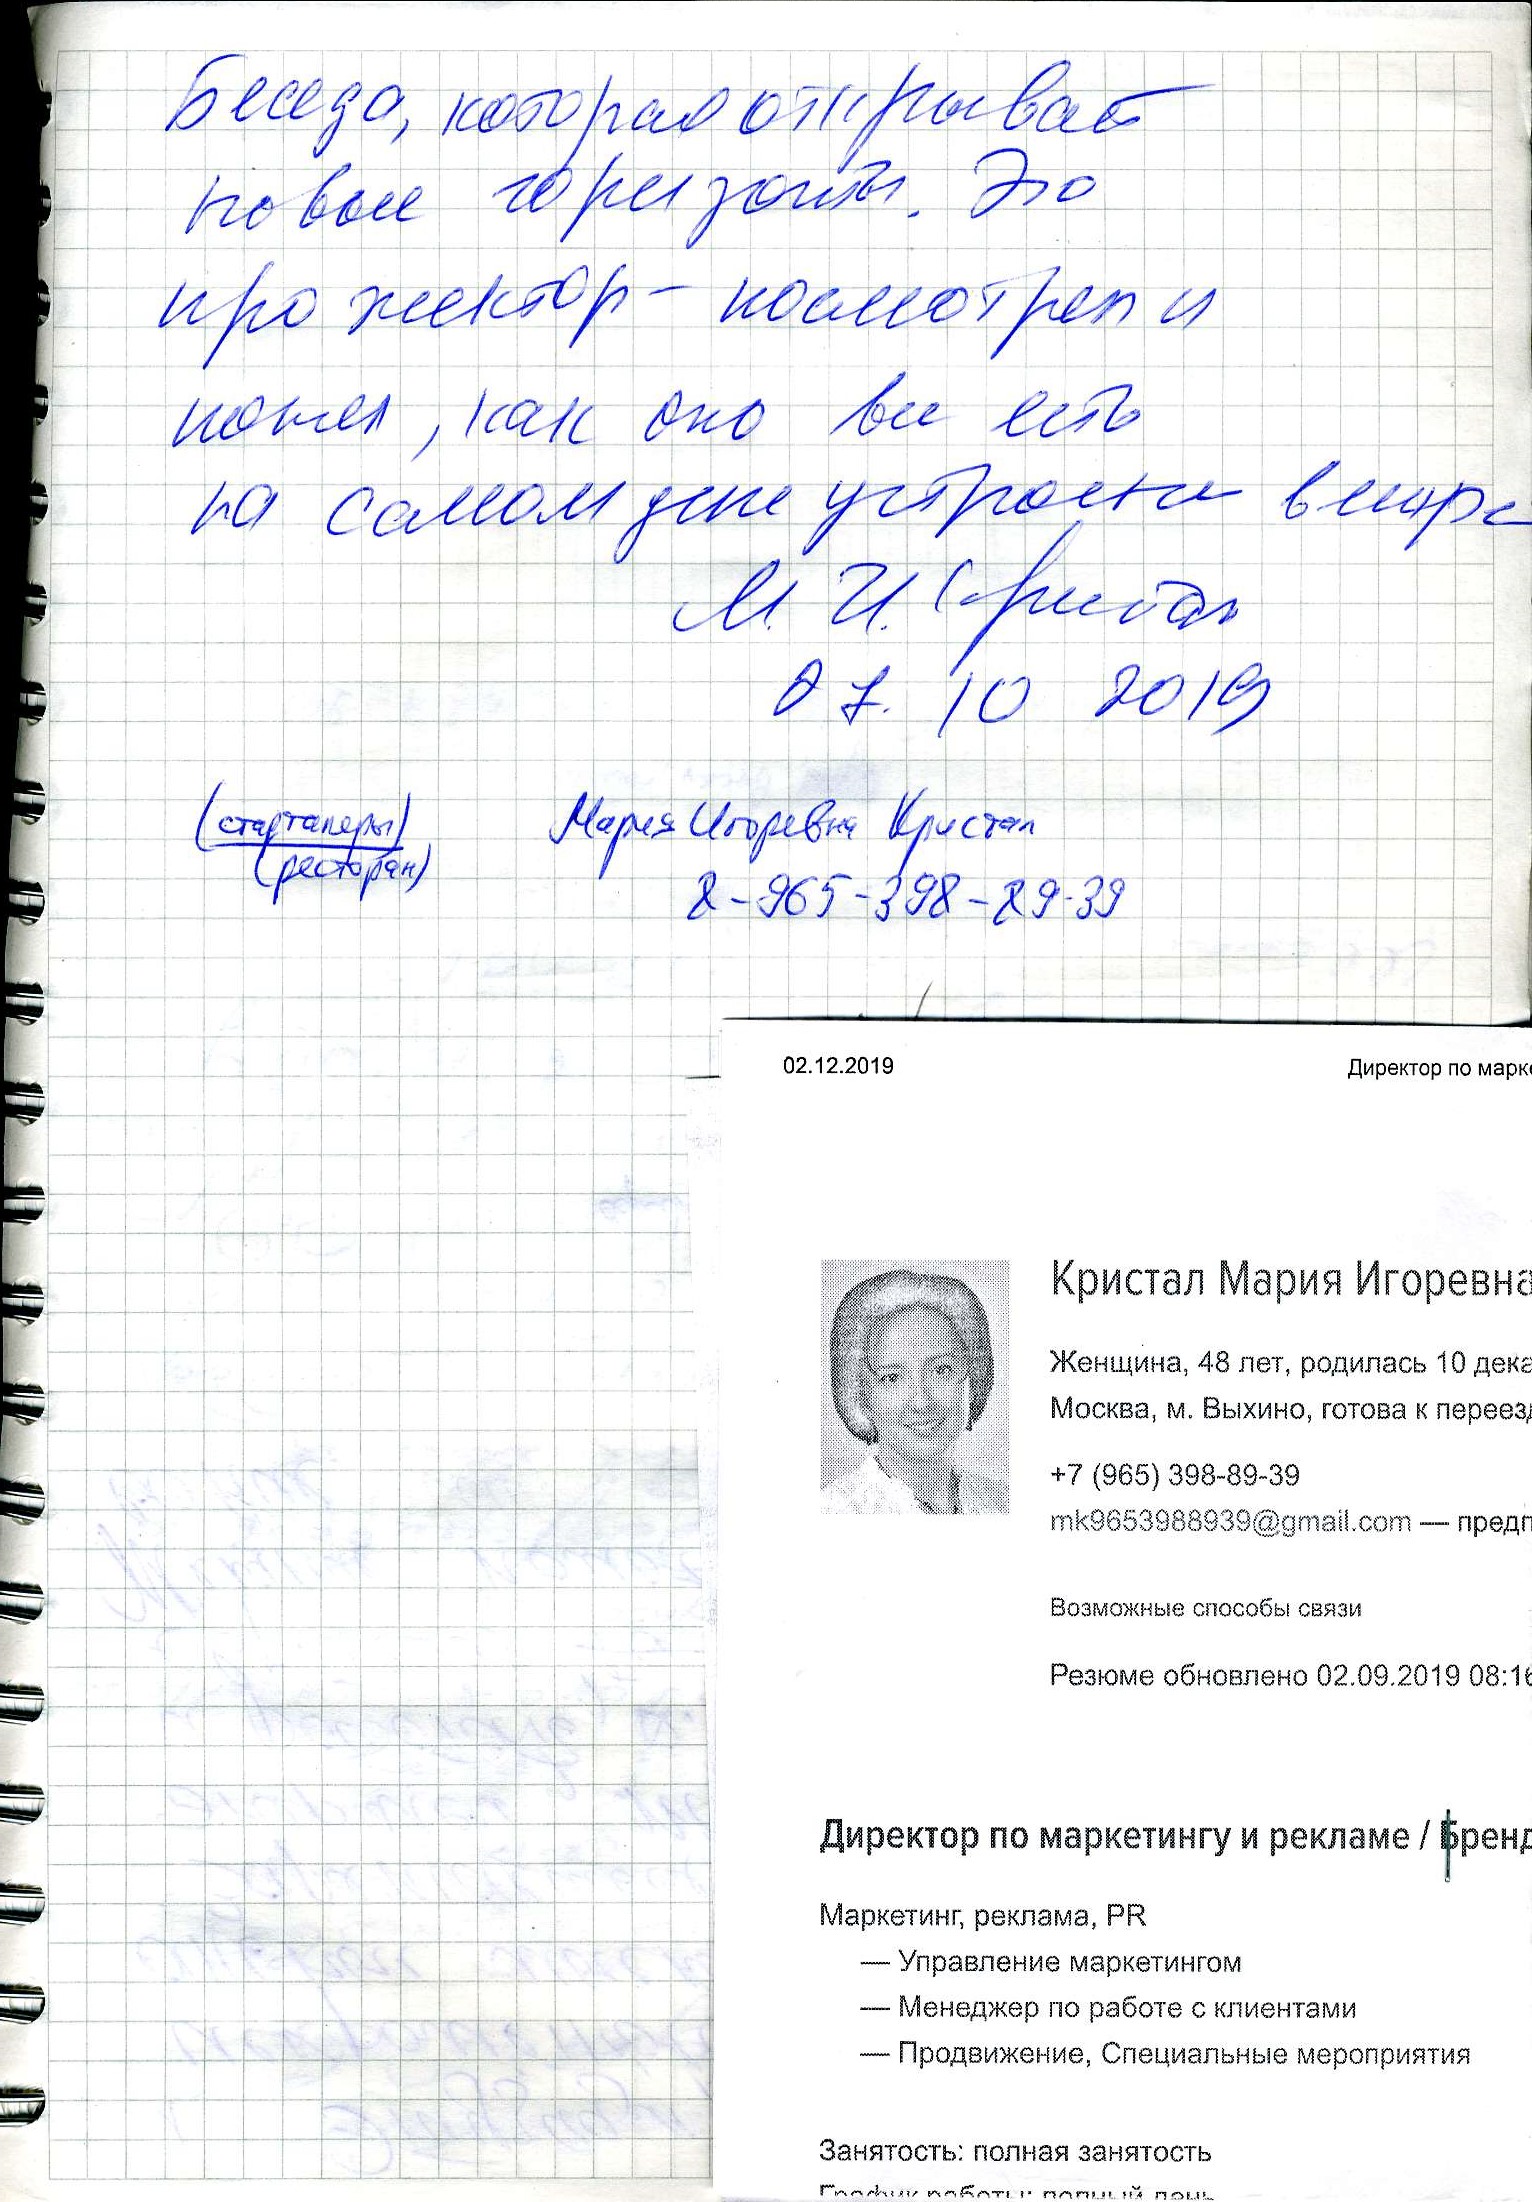 Беседа, которая открывает
новые горизонты. Это
прожектор - посмотрел и
понял, как оно все есть
на самом деле устроено внутри
М. И. Кристал
07. 10 2019
(стартаперы) Мария Игоревна Кристал
(ресторан) 8-965-398-89-39
02.12.2019 Директор по марке
Кристал Мария Игоревна
Женщина, 48 лет, родилась 10 дека
Москва, м. Выхино, готова к переезд
+7 (965) 398-89-39
mk9653988939@gmail.com — предп
Возможные способы связи
Резюме обновлено 02.09.2019 08:16
Директор по маркетингу и рекламе / Бренд
Маркетинг, реклама, PR
— Управление маркетингом
— Менеджер по работе с клиентами
— Продвижение, Специальные мероприятия
Занятость: полная занятость
График работы: полный день